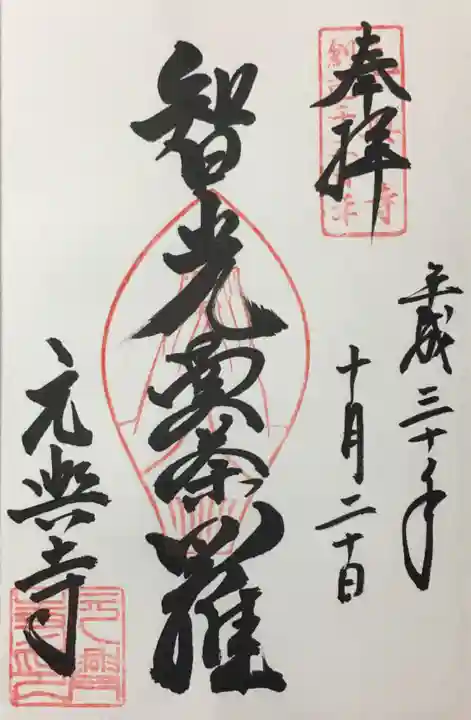 奉拝
平成三十年
十月二十日
智光曼荼羅
元興寺